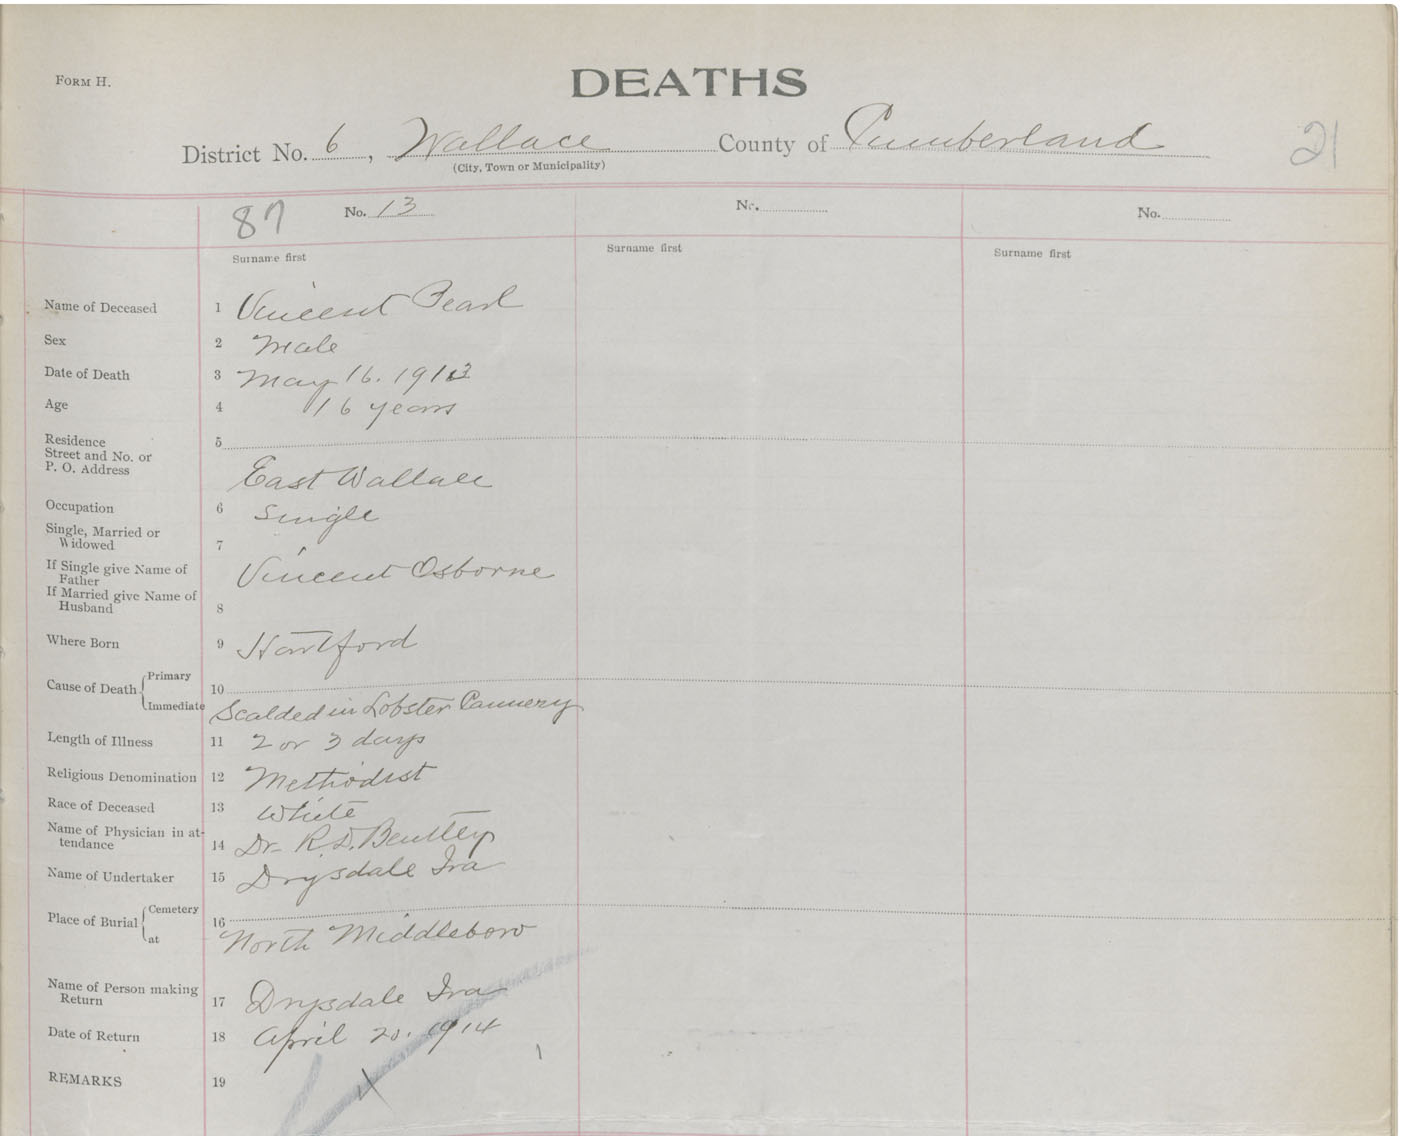 FORM H.
DEATHS
21
District No. 6, Wallace County of Cumberland
(City, Town or Municipality)
87 No. 13 No. No.
Surname first Surname first Surname first
Name of Deceased 1 Vincent Pearl
Sex 2 Male
Date of Death 3 May 16. 1913
Age 4 16 years
Residence 5
Street and No. or
P. O. Address
East Wallace
Occupation 6
Single
Single, Married or
Widowed 7
If Single give Name of
Father
Vincent Osborne
If Married give Name of
Husband 8
Where Born 9 Hartford
Cause of Death Primary 10
Immediate Scalded in Lobster Cannery
Length of Illness 11 2 or 3 days
Religious Denomination 12 Methodist
Race of Deceased 13 White
Name of Physician in at-
tendance 14 Dr. R. D. Bentley
Name of Undertaker 15 Drysdale Ira
Place of Burial Cemetery 16
at North Middleboro
Name of Person making
Return 17 Drysdale Ira
Date of Return 18 April 20. 1914
REMARKS 19